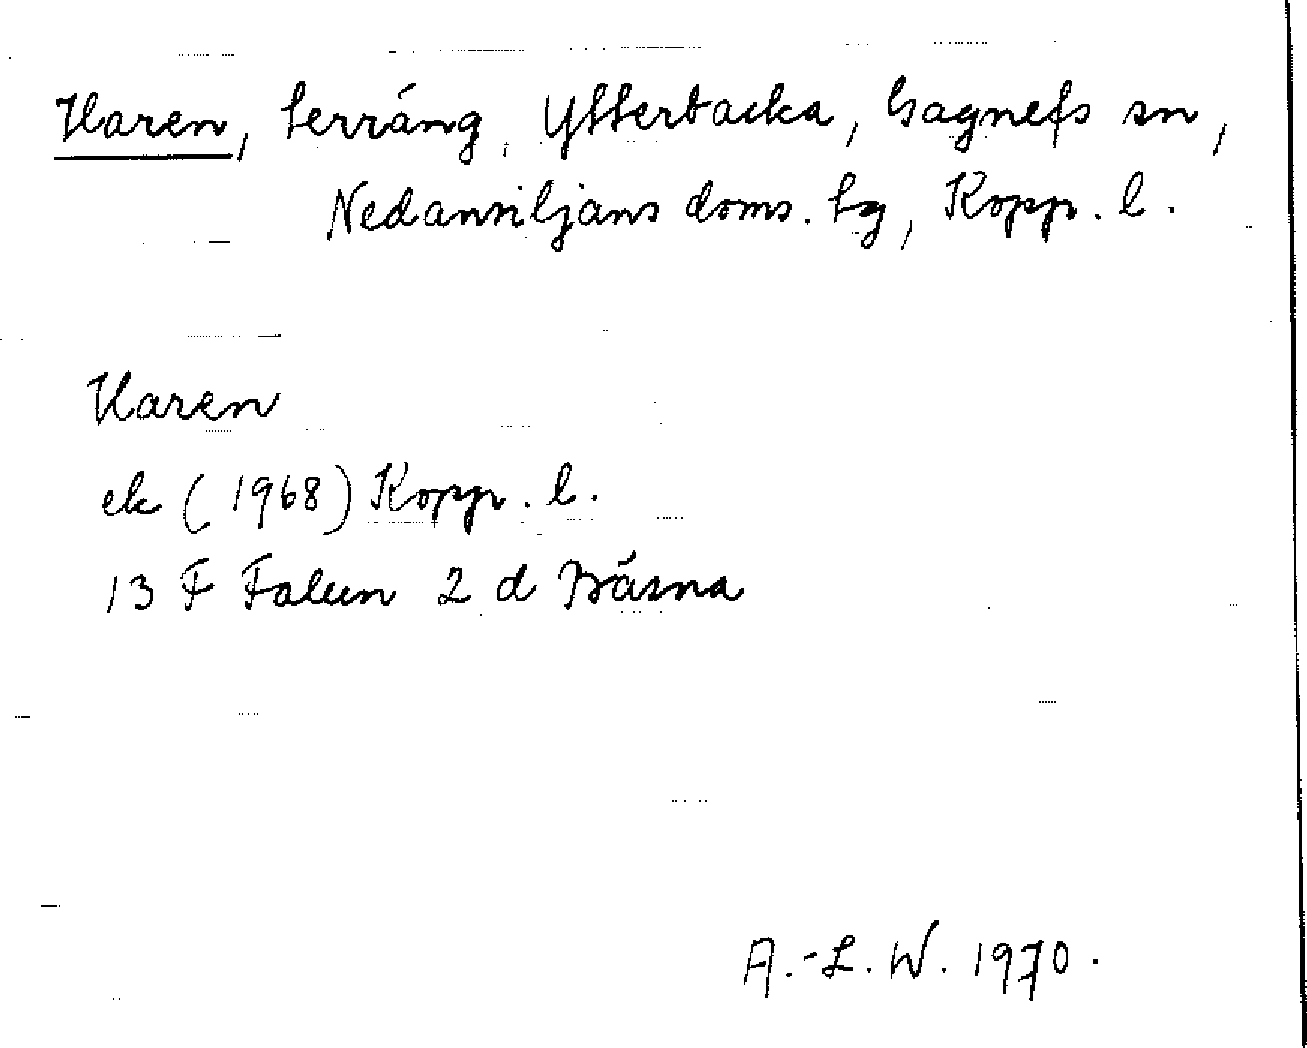 Haren, terräng, Ytterbacka, Gagnefs sn,
Nedansiljans doms. tg, Kopp. l.
Haren
ek (1968) Kopp. l.
13 F Falun 2 d Bäsna
A.-L. W. 1970.